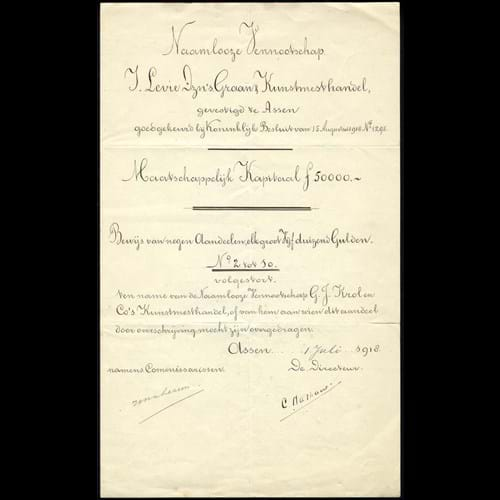 Naamlooze Vennootschap
J. Levie Dzn's Graan & Kunstmesthandel,
gevestigd te Assen
goedgekeurd bij Koninklijk Besluit van 15 Augustus 1918 No 1291
Maatschappelijk Kapitaal ƒ 50000.~
Bewijs van negen Aandeelen, elk groot Vijf duizend Gulden.
No 2 tot 10.
volgestort.
ten name van de Naamlooze Vennootschap G. J. Krol en
Co's Kunstmesthandel, of van hem aan wien dit aandeel
door overschrijving mocht zijn overgedragen.
Assen 1 Juli 1918
namens Commissarissen. De Directeur.